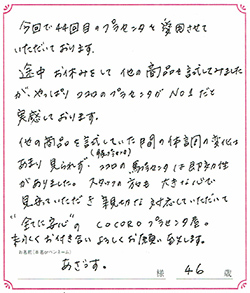 今回で44回目のプラセンタを愛用させて
いただいております。
途中お休みをして他の商品を試してみました
が、やっぱりココロのプラセンタがNO1だと
実感しております。
他の商品を試していた間の体調の変化は
あまり見られず、ココロの馬プラセンタは即効性
がありました。スタッフの方も大きな心で
見守っていただき親切な対応していただいて
"全てに安心"のCOCOROプラセンタ屋。
末永くお付き合いよろしくお願い致します。
お名前(本名orペンネーム)
あさうす。 様 46 歳